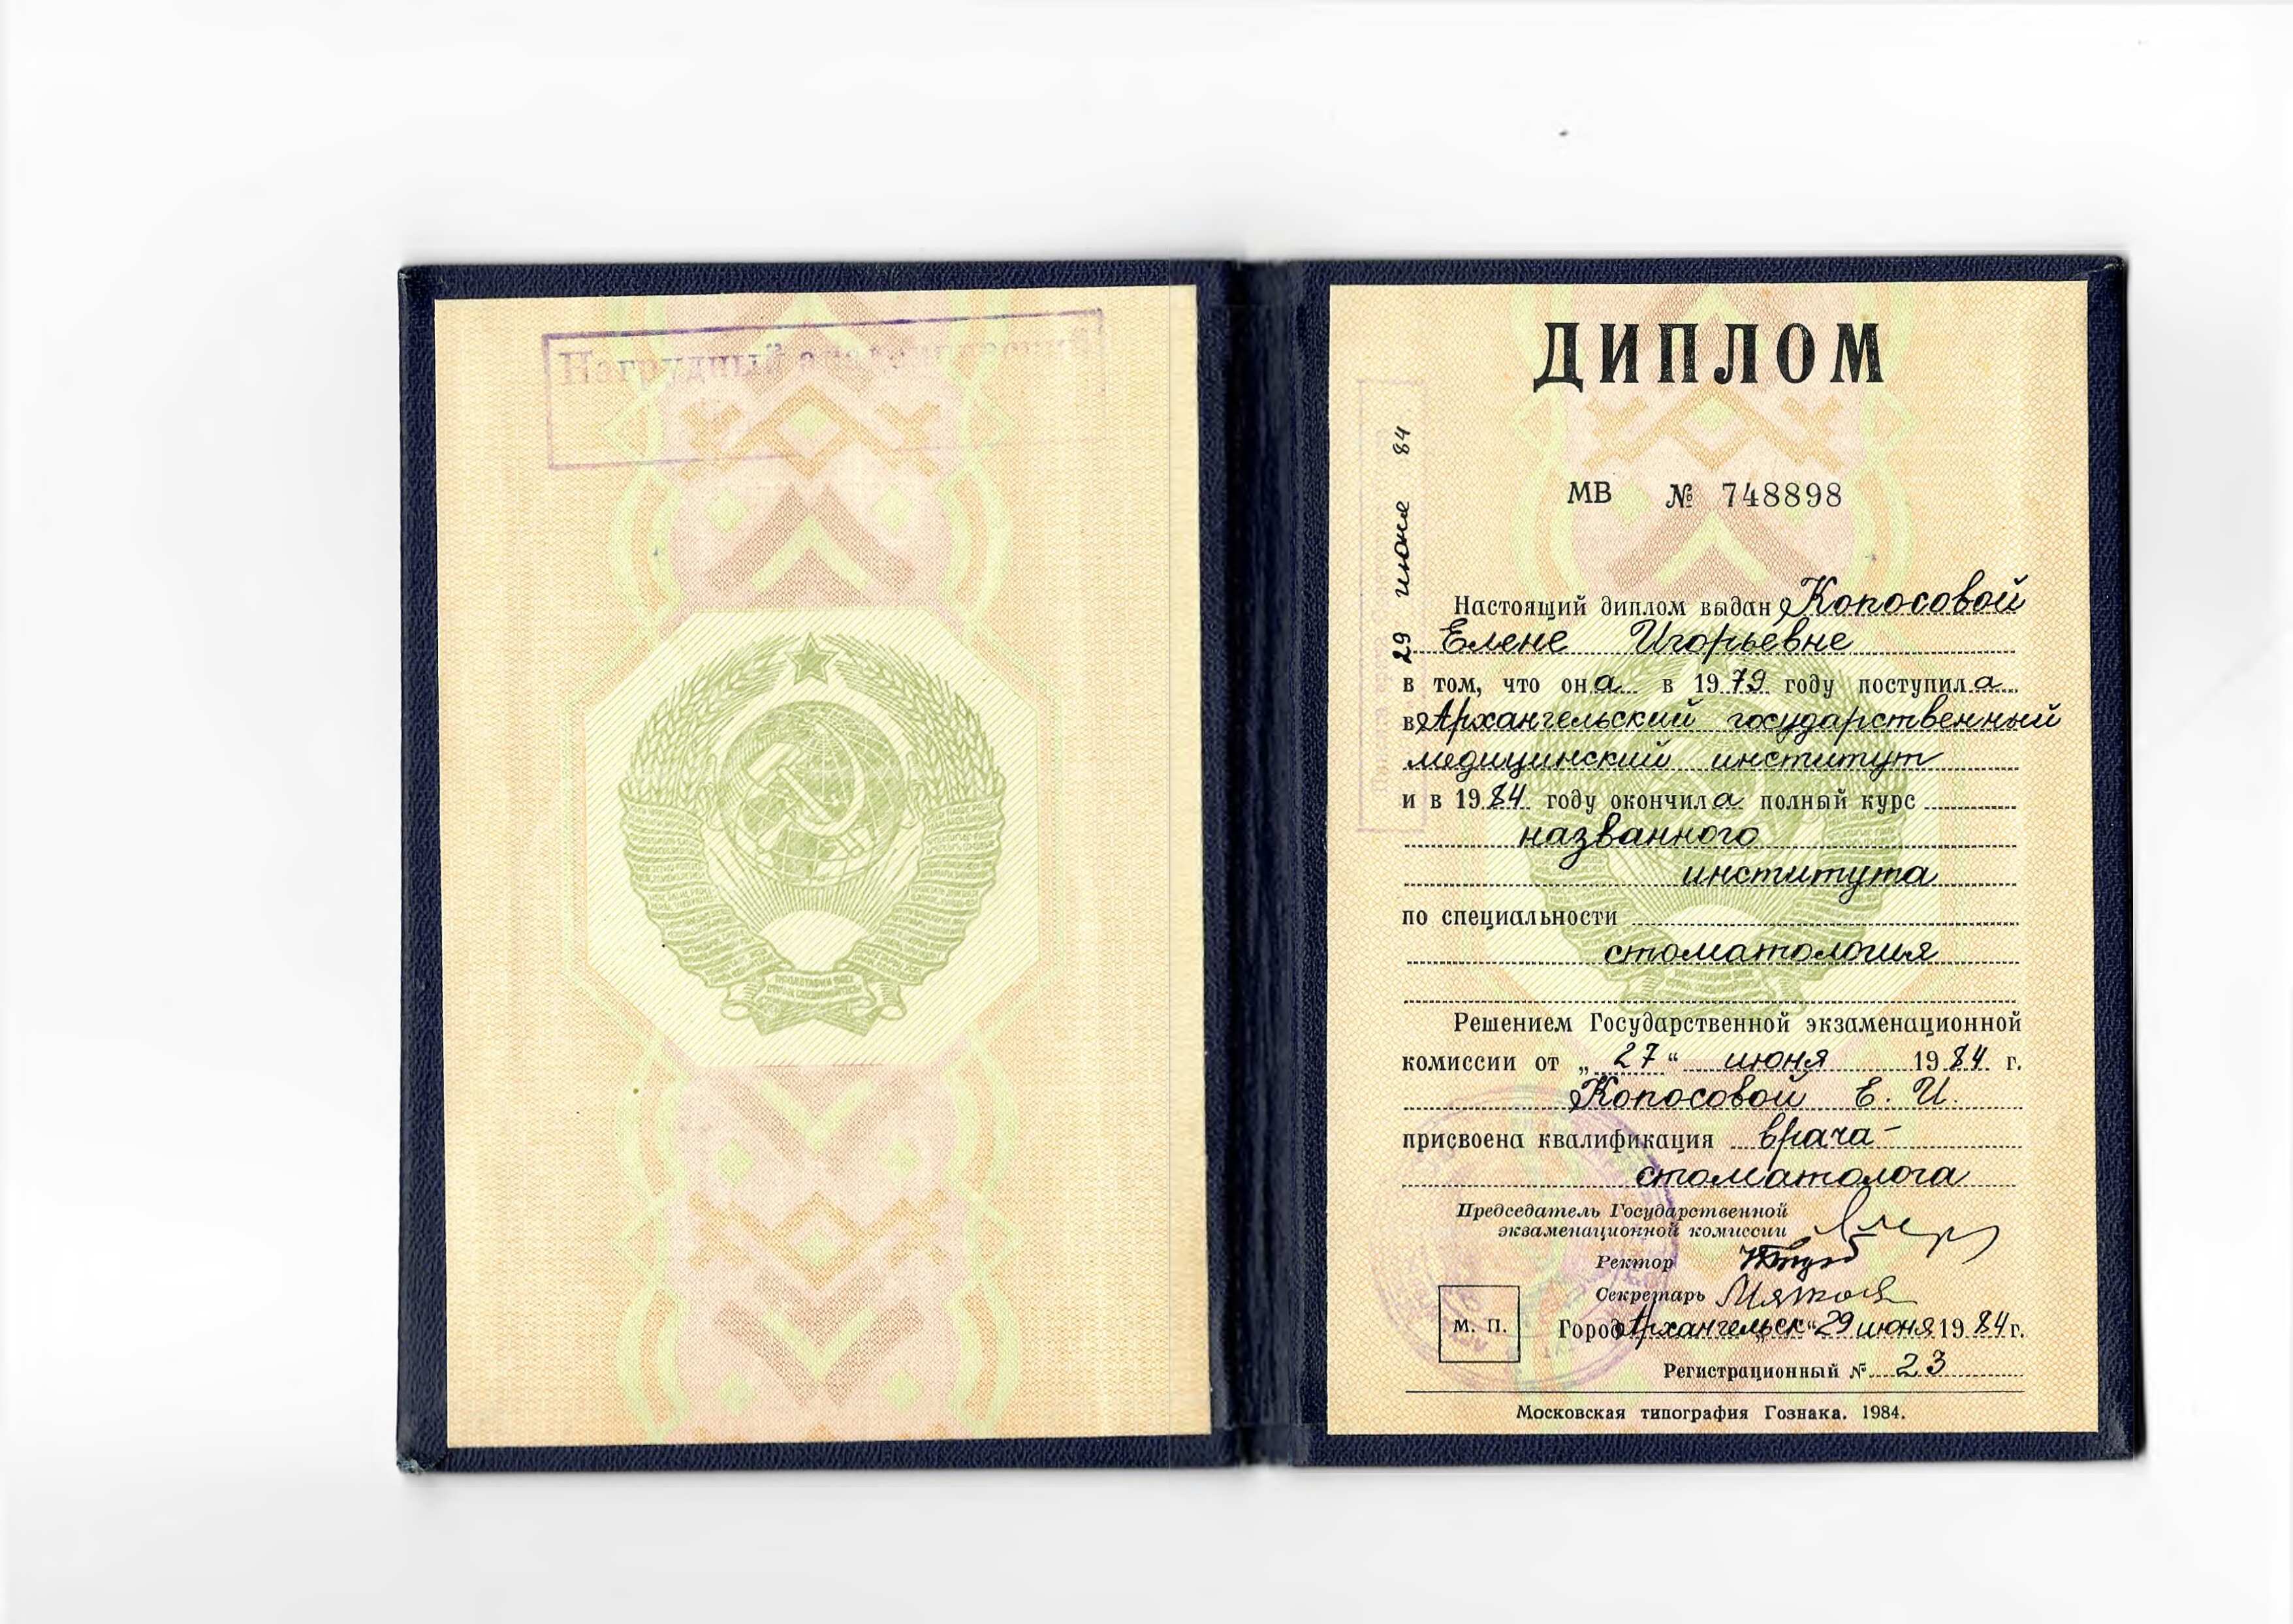 Нагрудный
ДИПЛОМ
МВ № 748898
29 июня 84
Настоящий диплом выдан Копосовой
Елене Игорьевне
в том, что она в 1979 году поступила
в Архангельский государственный
медицинский институт
и в 1984 году окончила полный курс
названного
института
по специальности
стоматология
Решением Государственной экзаменационной
комиссии от „27“ июня 1984 г.
Копосовой Е. И.
присвоена квалификация врача-
стоматолога
Председатель Государственной
экзаменационной комиссии
Ректор
Секретарь
М. П.
Город Архангельск „29 июня 1984 г.
Регистрационный № 23
Московская типография Гознака. 1984.